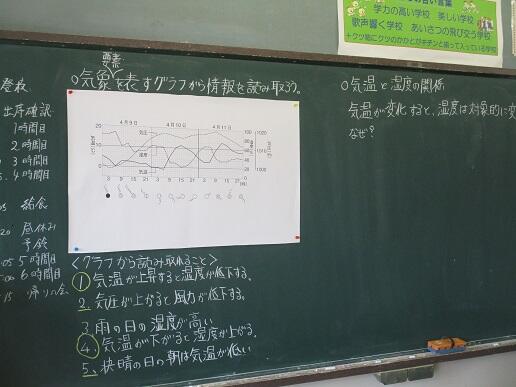 学力の高い学校　美しい学校
歌声響く学校　あいさつの飛び交う学校
登校
出席確認
1時間目
2時間目
3時間目
4時間目
給食
昼休み
予鈴
5時間目
6時間目
帰りの会
要素
○気象を表すグラフから情報を読み取ろう。
4月9日 4月10日 4月11日
気圧
湿度
気温
<グラフから読み取れること>
① 気温が上昇すると湿度が低下する。
2. 気圧が上がると風力が低下する。
3. 雨の日の湿度が高い
④. 気温が下がると湿度が上がる。
5. 快晴の日の朝は気温が低い
○気温と湿度の関係
気温が変化すると、湿度は対象的に変
なぜ?